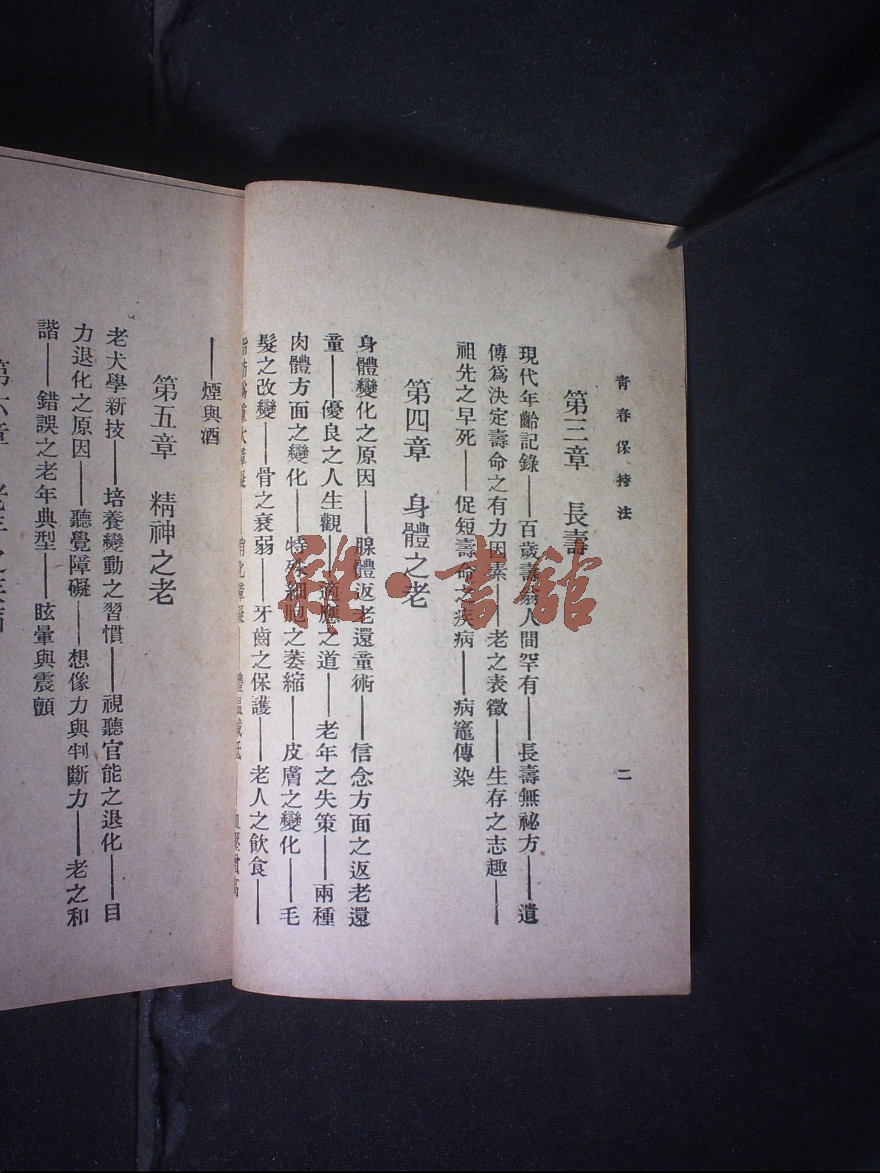 青春保持法
二
第三章　長壽
現代年齡記錄——百歲壽翁人間罕有——長壽無祕方——遺
傳爲決定壽命之有力因素——老之表徵——生存之志趣——
祖先之早死——促短壽命之疾病——病竈傳染
第四章　身體之老
身體變化之原因——腺體返老還童術——信念方面之返老還
童——優良之人生觀——適應之道——老年之失策——兩種
肉體方面之變化——特殊細胞之萎縮——皮膚之變化——毛
髮之改變——骨之衰弱——牙齒之保護——老人之飲食——
脂肪爲重大障礙——消化障礙——體溫減低——血壓增高
——煙與酒
第五章　精神之老
老犬學新技——培養變動之習慣——視聽官能之退化——目
力退化之原因——聽覺障礙——想像力與判斷力——老之和
諧——錯誤之老年典型——眩暈與震顫
第六章　老年之疾病
雜·書館